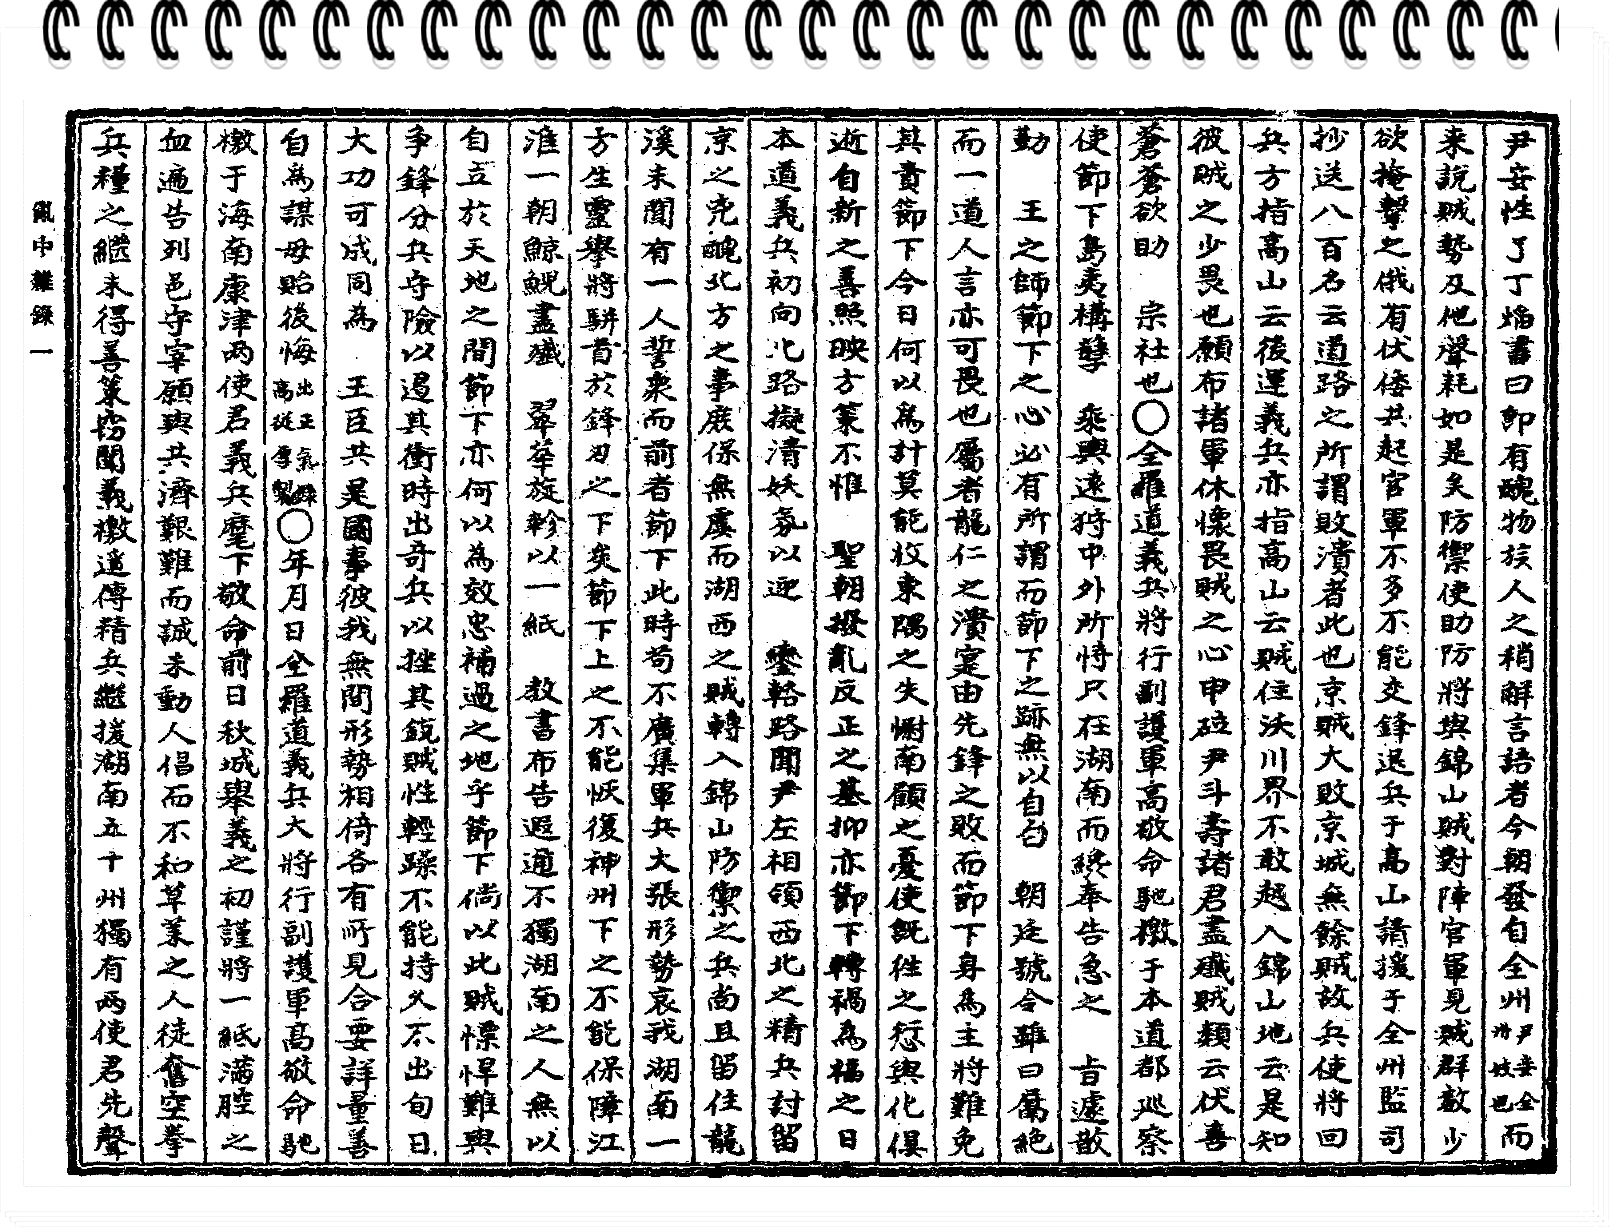 尹妾性了丁焰書曰卽有醜物族人之稍解言語者今朝發自全州尹妾全州妓也而
来說賊勢及他聲耗如是矣防禦使助防將與錦山賊對陣官軍見賊群數少
欲掩擊之俄有伏倭共起官軍不多不能交鋒退兵于高山請援于全州監司
抄送八百名云道路之所謂敗潰者此也京賊大敗京城無餘賊故兵使將回
兵方指高山云後運義兵亦指高山云賊住沃川界不敢越入錦山地云是知
彼賊之少畏也願布諸軍休懷畏賊之心申砬尹斗壽諸君盡殲賊類云伏喜
蒼蒼欲助 宗社也〇全羅道義兵將行副護軍高敬命馳檄于本道都巡察
使節下島夷構孽 乘輿遠狩中外所恃只在湖南而終奉告急之 旨遽散
勤 王之師節下之心必有所謂而節下之跡無以自白 朝廷號令雖曰屬絶
而一道人言亦可畏也屬者龍仁之潰寔由先鋒之敗而節下身為主將難免
其責節下今日何以爲計莫能收東隅之失慰南顧之憂使旣往之愆與化俱
逝自新之善照映方策不惟 聖朝撥亂反正之基抑亦節下轉禍為福之日
本道義兵初向北路擬清妖氛以迎 鑾輅路聞尹左相領西北之精兵討留
京之兇醜北方之事庶保無虞而湖西之賊轉入錦山防禦之兵尚且留住龍
溪未聞有一人誓衆而前者節下此時苟不廣集軍兵大張形勢哀我湖南一
方生靈擧將騈首於鋒刃之下矣節下上之不能恢復神州下之不能保障江
淮一朝鯨鯢盡殲 翠華旋軫以一紙 敎書布告遐邇不獨湖南之人無以
自立於天地之間節下亦何以為效忠補過之地乎節下倘以此賊慓悍難與
爭鋒分兵守險以遏其衝時出奇兵以挫其銳賊性輕躁不能持久不出旬日
大功可成同為 王臣共是國事彼我無間形勢相倚各有所見合要詳量善
自爲謀毋貽後悔出正氣錄高從厚製〇年月日全羅道義兵大將行副護軍高敬命馳
檄于海南康津兩使君義兵麾下敬命前日秋城擧義之初謹將一紙滿腔之
血遍告列邑守宰願與共濟艱難而誠未動人倡而不和草莽之人徒奮空拳
兵糧之繼未得善策窃聞義檄遥傳精兵繼援湖南五十州獨有兩使君先聲
亂中雜錄 一